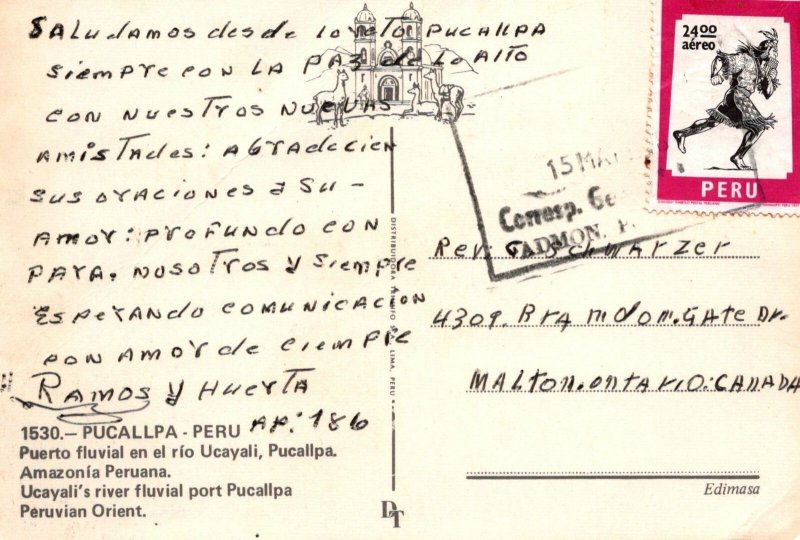 SALudamos desde Loreto PUCALLPA
siempre con LA PAZ de Lo ALTO
CON NUESTROS NUEVAS
AMISTADES: AGRADECIEN
SUS ORACIONES A SU-
AMOR: PROFUNDO CON
PARA. NOSOTROS Y Siempre
ESPERANDO COMUNICACION
CON AMOR de CIEMPRE
RAMOS Y HUERTA
AP: 186
1530.— PUCALLPA - PERU
Puerto fluvial en el río Ucayali, Pucallpa.
Amazonía Peruana.
Ucayali's river fluvial port Pucallpa
Peruvian Orient.
DISTRIBUIDORA
LIMA, PERU
DT
24.00
aéreo
PERU
15 MA
Corresp.
ADMON.
Rev: SCHWARZER
4309. BRAMDOM.GATE Dr.
MALTON.ONTARIO:CANADA
Edimasa